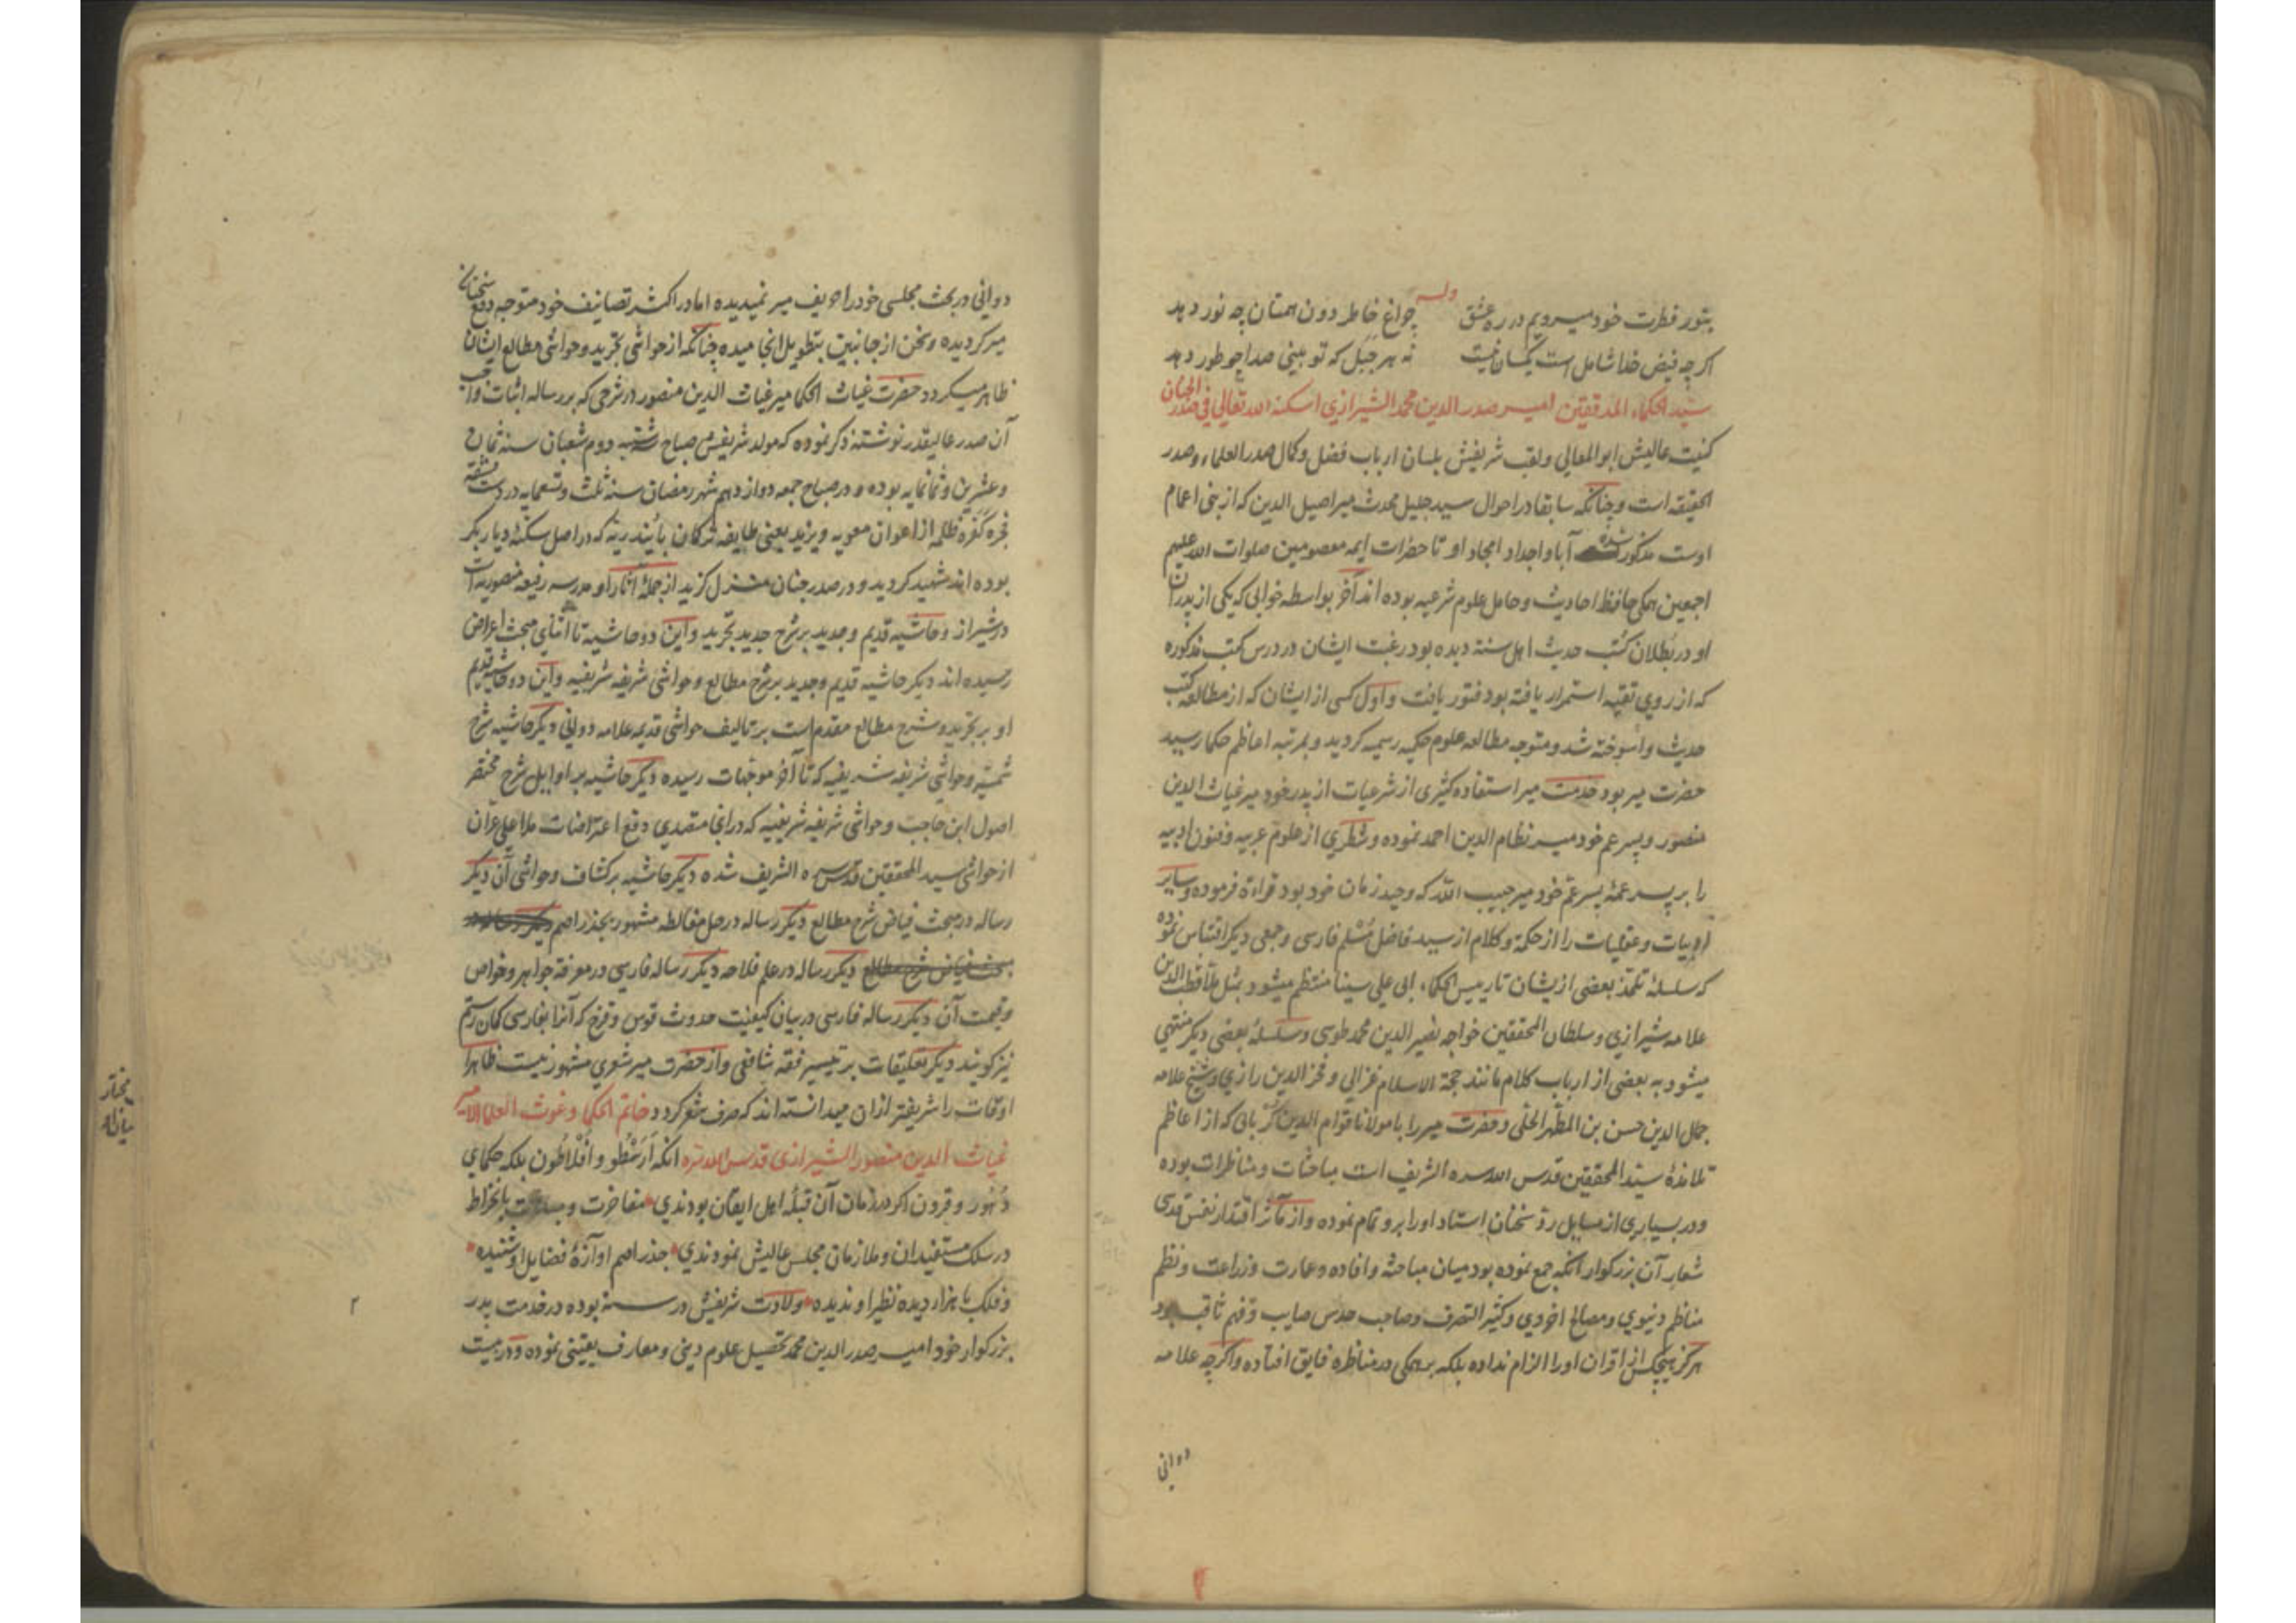 وله
بنور فطرت خود میرویم در ره عشق چراغ خاطر دون همتان چه نور دهد
اگر چه فیض خدا شامل است یکسان نیست نه هر جبل که تو بینی صدا چو طور دهد
سید الحکماء المدققین امیر صدر الدین محمد الشیرازی اسکنه الله تعالی فی صدر الجنان
کنیت عالیش ابو المعالی ولقب شریفش بلسان ارباب فضل وکمال صدر العلماء وصدر
الحقیقه است وچنانکه سابقا در احوال سید جلیل محدث میر اصیل الدین که از بنی اعمام
اوست مذکور شده آبا واجداد امجاد او تا حضرات ایمه معصومین صلوات الله علیهم
اجمعین همکی حافظ احادیث وحامل علوم شرعیه بوده اند آخر بواسطه خوابی که یکی از پدران
او در بطلان کتب حدیث اهل سنة دیده بود رغبت ایشان در درس کتب مذکوره
که از روی تقیه استمرار یافته بود فتور یافت واول کسی از ایشان که از مطالعه کتب
حدیث واسوخته شد ومتوجه مطالعه علوم حکمیه رسمیه کردید وبمرتبه اعاظم حکما رسید
حضرت میر بود خدمت میر استفاده کثیری از شرعیات از پدر خود میر غیاث الدین
منصور وپسر عم خود میر نظام الدین احمد نموده وشطری از علوم عربیه وفنون ادبیه
را بر پسر عمه پسر عم خود میر حبیب الله که وحید زمان خود بود قراءة فرموده وسایر
ادبیات وعقلیات را از حکمة وکلام از سید فاضل مسلم فارسی وجمعی دیکر اقتباس نموده
که سلسله تلمذ بعضی از یشان تا رییس الحکماء ابی علی سینا منتظم میشود بمثل ملا قطب الدین
علامه شیرازی وسلطان المحققین خواجه نصیر الدین محمد طوسی وسلسله بعضی دیکر منتهی
میشود به بعضی از ارباب کلام مانند حجة الاسلام غزالی وفخر الدین رازی وشیخ علامه
جمال الدین حسن بن المطهر الحلی وحضرت میر را با مولانا قوام الدین کربالی که از اعاظم
تلامذهٔ سید المحققین قدس الله سره الشریف است مباحثات ومناظرات بوده
ودر بسیاری از مسایل رد سخنان استاد او را برو تمام نموده واز مآثر اقتدار نفس قدسی
شعار آن بزرکوار آنکه جمع نموده بود میان مباحثه وافاده وعمارت وزراعت ونظم
مناظم دنیوی ومصالح اخروی وکثیر التصرف وصاحب حدس صایب وفهم ثاقب بود
هرکز هیچکس از اقران او را الزام نداده بلکه بر همکی در مناظره فایق افتاده واکرچه علامه
دوانی
دوانی در بحث مجلسی خود را حریف میر نمیدیده اما در اکثر تصانیف خود متوجه دفع سخنان
میر کردیده وسخن از جانبین بتطویل انجامیده چنانکه از حواشی تجرید وحواشی مطالع ایشان
ظاهر میکردد حضرت غیاث الحکما میر غیاث الدین منصور در شرحی که بر رساله اثبات واجب
آن صدر عالیقدر نوشته ذکر نموده که مولد شریفش صباح شنبه دوم شعبان سنه ثمان
وعشرین وثمانمایه بوده ودر صباح جمعه دوازدهم شهر رمضان سنه ثلث وتسعمایه در دست
فجره کفره ظلمه از اعوان معویه ویزید یعنی طایفه ترکمان بایندریه که در اصل سکنهٔ دیار بکر
بوده اند شهید کردید ودر صدر جنان منزل کزید از جملهٔ آثار او مدرسه رفیعه منصوریه است
در شیراز وحاشیه قدیم وجدید بر شرح جدید تجرید واین دو حاشیه تا اثنای مبحث اعراض
رسیده اند دیکر حاشیه قدیم وجدید بر شرح مطالع وحواشی شریفه شریفیه واین دو حاشیه قدیم
او بر تجرید وشرح مطالع مقدم است بر تالیف حواشی قدیمه علامه دوانی دیکر حاشیه شرح
شمسیه وحواشی شریفه شریفیه که تا آخر موجهات رسیده دیکر حاشیه بر اوایل شرح مختصر
اصول ابن حاجب وحواشی شریفه شریفیه که در انجا متصدی دفع اعتراضات ملا علی عران
از حواشی سید المحققین قدس سره الشریف شده دیکر حاشیه بر کشاف وحواشی آن دیکر
رساله در مبحث فیاض شرح مطالع دیکر رساله در حل مغالطه مشهور بجذر اصم
دیکر رساله در علم فلاحه دیکر رساله فارسی در معرفة جواهر وخواص
وقیمت آن دیکر رساله فارسی در بیان کیفیت حدوث قوس وقزح که آنرا بفارسی کمان رستم
نیز کویند دیکر تعلیقات بر تیسیر فقه شافعی واز حضرت میر شعری مشهور نیست ظاهرا
اوقات را شریفتر ازان میدانسته اند که صرف شعر کردد خاتم الحکما وغوث العلما الامیر
غیاث الدین منصور الشیرازی قدس الله سره آنکه ارسطو وافلاطون بلکه حکمای
دهور وقرون اکر در زمان آن قبلهٔ اهل ایقان بودندی مفاخرت ومباهات بانخراط
در سلک مستفیدان وملازمان مجلس عالیش نمودندی جذر اصم آوازهٔ فضایل او شنیده
وفلک با هزار دیده نظیر او ندیده ولادت شریفش در سنه بوده در خدمت پدر
بزرکوار خود امیر صدر الدین محمد تحصیل علوم دینی ومعارف یقینی نموده ودر بیست
۲